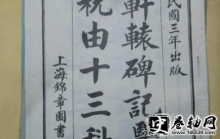 民國三年出版
軒轅碑記醫
祝由十三科
上海錦章圖書
卷軸网